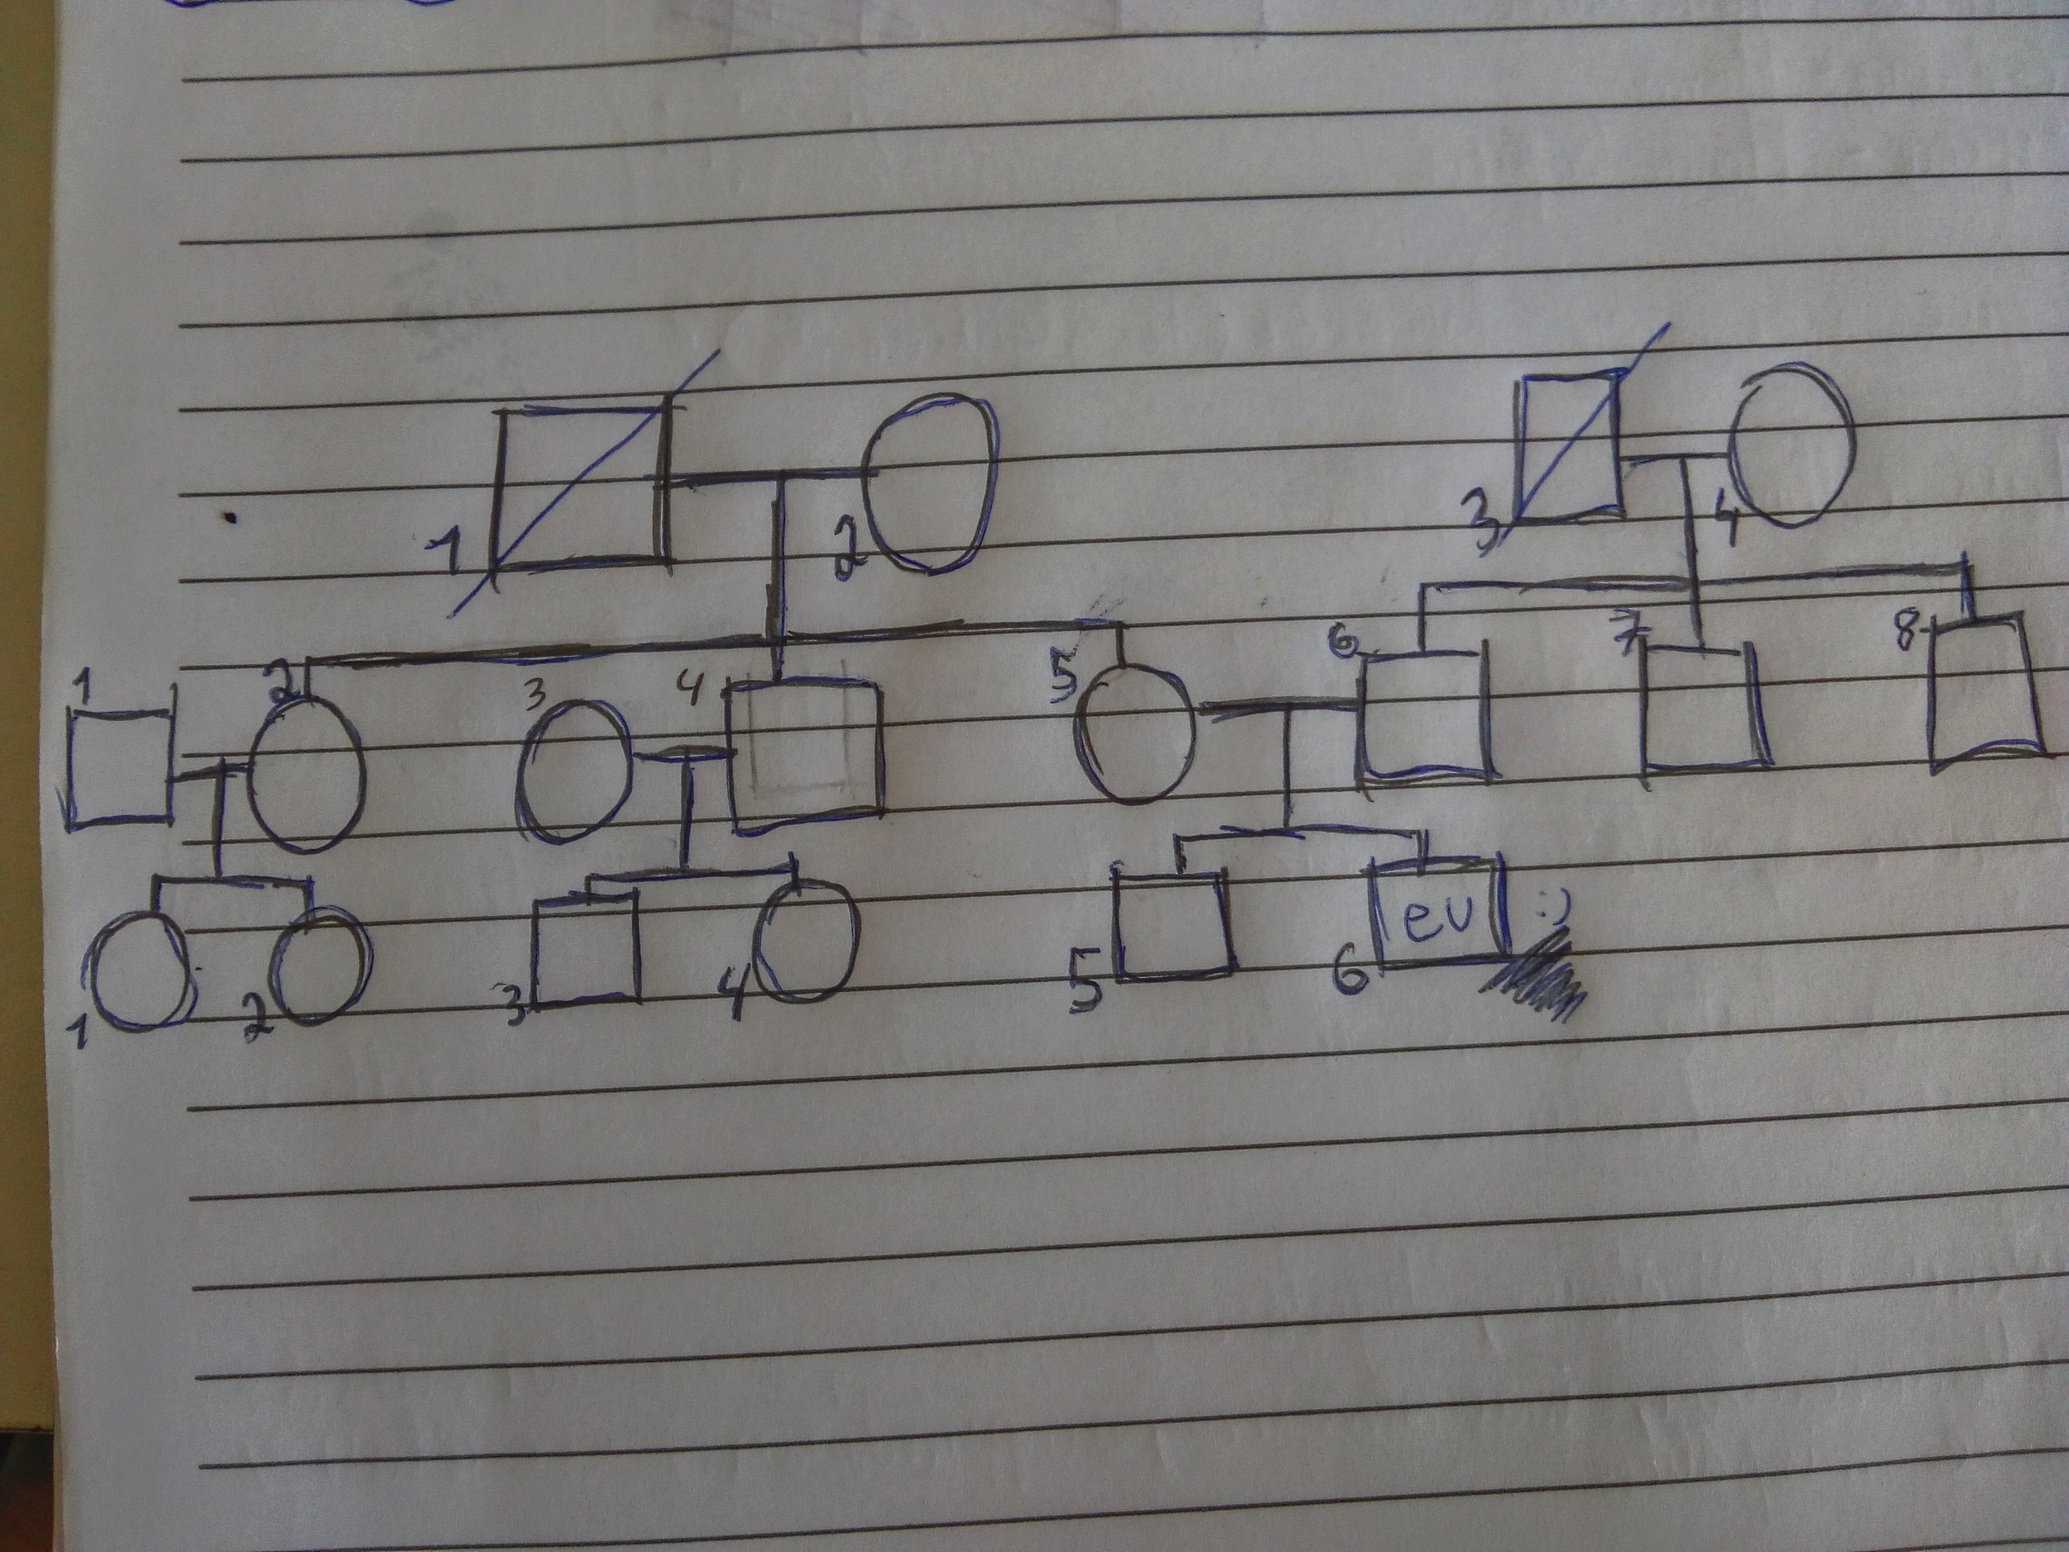 1 2 3 4
1 2 3 4 5 6 7 8
1 2 3 4 5 6 eu :)